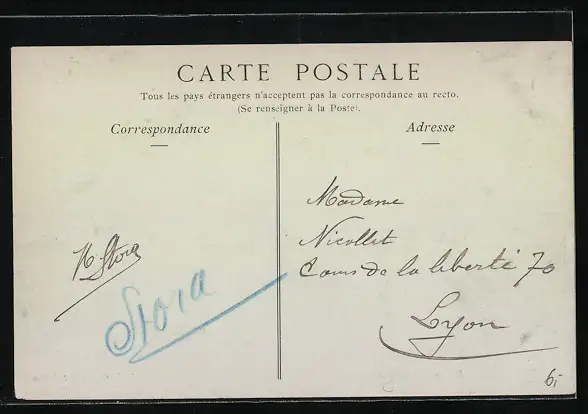 CARTE POSTALE
Tous les pays étrangers n'acceptent pas la correspondance au recto.
(Se renseigner à la Poste).
Correspondance
Adresse
Madame
Nicollet
Cours de la liberté 70
Lyon
N. Stora
Stora
6,-